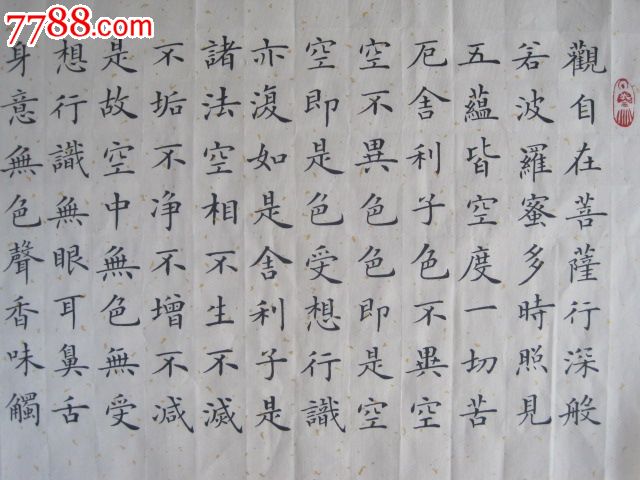 7788.com
觀自在菩薩行深般
若波羅蜜多時照見
五蘊皆空度一切苦
厄舍利子色不異空
空不異色色即是空
空即是色受想行識
亦復如是舍利子是
諸法空相不生不滅
不垢不净不增不減
是故空中無色無受
想行識無眼耳鼻舌
身意無色聲香味觸